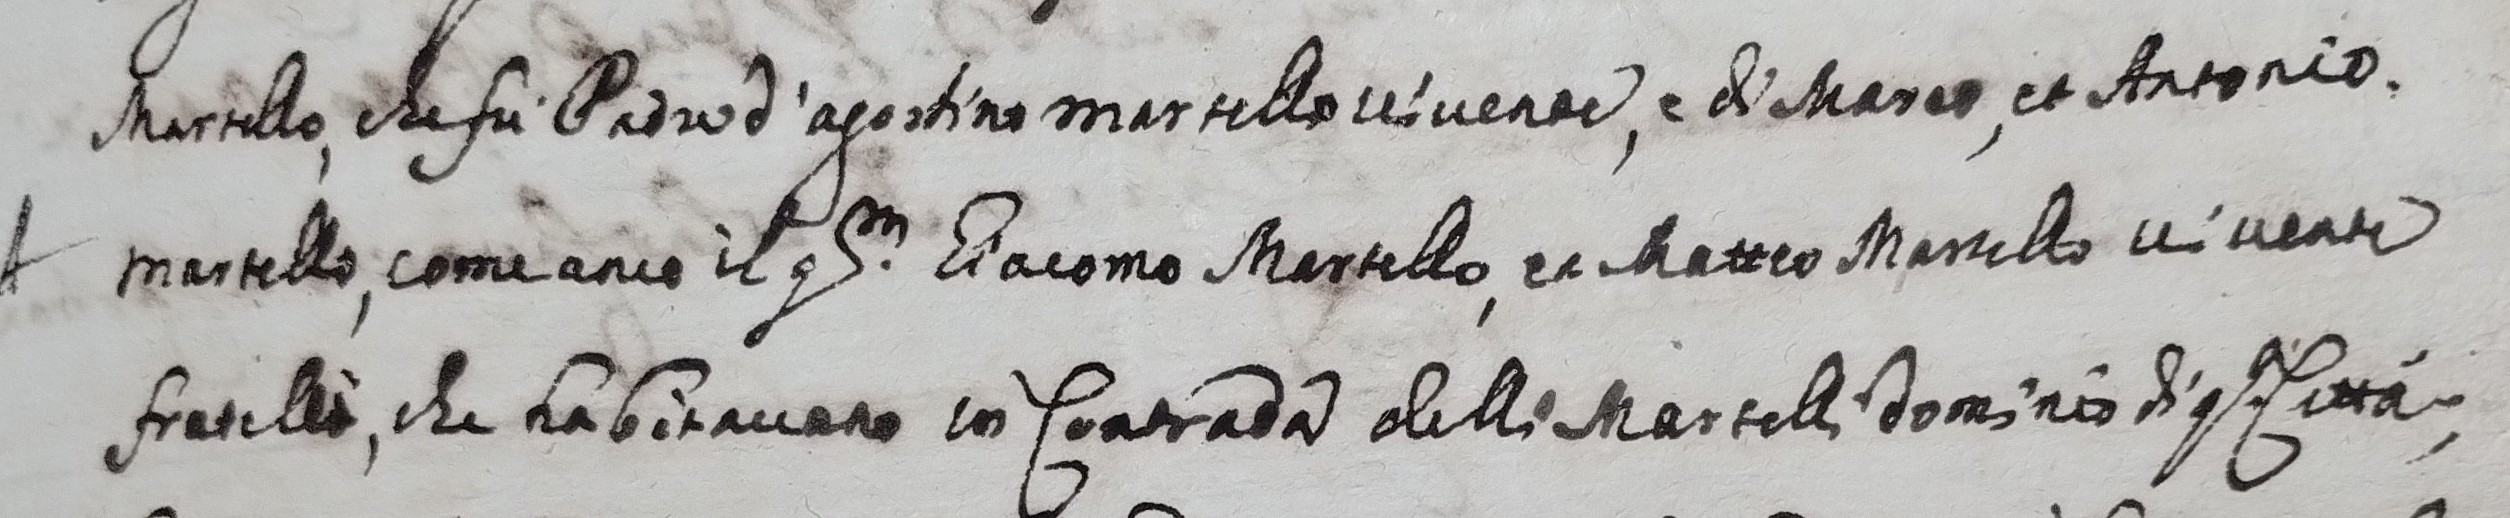 Martello, che fù Padre d'agostino martello uiuente, e di Marco, et Antonio.
martello, come anco il qm. Giacomo Martello, et Matteo Martello uiuente
fratelli, che habitauano in Contrada delli Martelli dominio di qsta Città,